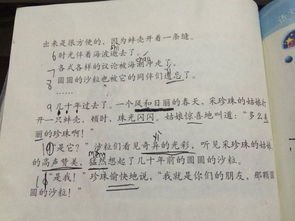 出来是很方便的，因为蚌壳开着一条缝。
6 时光伴着海波逝去了。
7 各式各样的议论被海冲走了，
8 圆圆的沙粒也被它的同伴们遗忘了。
……
9 几十年过去了。一个风和日丽的春天，采珍珠的姑娘
开一只蚌壳。顿时，珠光闪闪。姑娘惊喜地叫道：“多么
丽的珍珠啊！”
10 是它？”沙粒们看见奇异的光彩，听见采珍珠的姑
的高声赞美，猛然想起了几十年前的圆圆的沙粒。
11 “是我！”珍珠愉快地说，“我就是你们的朋友，那颗
圆的沙粒！”